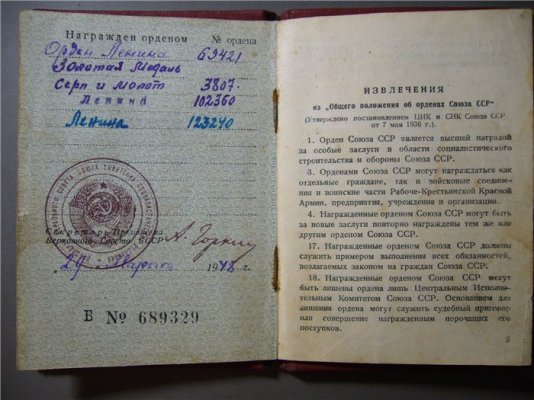 Награжден орденом № ордена
Орден Ленина 69421
Золотая Медаль
Серп и молот 3807.
Ленина 102360
Ленина 123240
Секретарь Президиума
Верховного Совета СССР А. Горкин
1948 г.
Б № 689329
ИЗВЛЕЧЕНИЯ
из „Общего положения об орденах Союза ССР“
(Утверждено постановлением ЦИК и СНК Союза ССР
от 7 мая 1936 г.).
1. Орден Союза ССР является высшей наградой
за особые заслуги в области социалистического
строительства и обороны Союза ССР.
3. Орденами Союза ССР могут награждаться как
отдельные граждане, так и войсковые соедине-
ния и воинские части Рабоче-Крестьянской Красной
Армии, предприятия, учреждения и организации.
4. Награжденные орденом Союза ССР могут быть
за новые заслуги повторно награждены тем же или
другим орденом Союза ССР.
17. Награжденные орденом Союза ССР должны
служить примером выполнения всех обязанностей,
возлагаемых законом на граждан Союза ССР.
18. Награжденные орденом Союза ССР могут
быть лишены ордена лишь Центральным Исполни-
тельным Комитетом Союза ССР. Основанием для
лишения ордена могут служить судебный приговор
или совершение награжденным порочащих его
поступков.
5